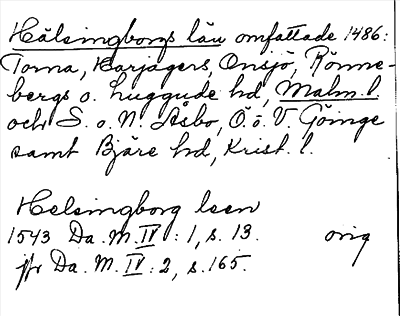 Hälsingborgs län omfattade 1486:
Torna, Harjagers, Onsjö, Rönne-
bergs o. Luggude hd, Malm. l.
och S. o. N. Åsbo, Ö. o. V. Göinge
samt Bjäre hd, Krist. l.
Helsingborg leen
1543 Da. M. IV : 1, s. 13. orig
jfr Da. M. IV : 2, s. 165.